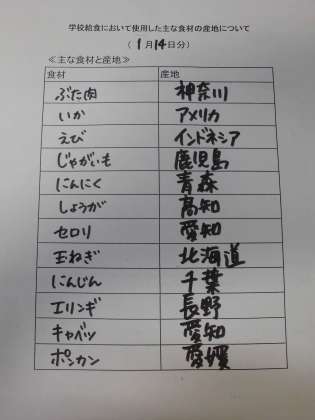 学校給食において使用した主な食材の産地について
（ 1月14日分）
≪主な食材と産地≫
食材 産地
ぶた肉 神奈川
いか アメリカ
えび インドネシア
じゃがいも 鹿児島
にんにく 青森
しょうが 高知
セロリ 愛知
玉ねぎ 北海道
にんじん 千葉
エリンギ 長野
キャベツ 愛知
ポンカン 愛媛